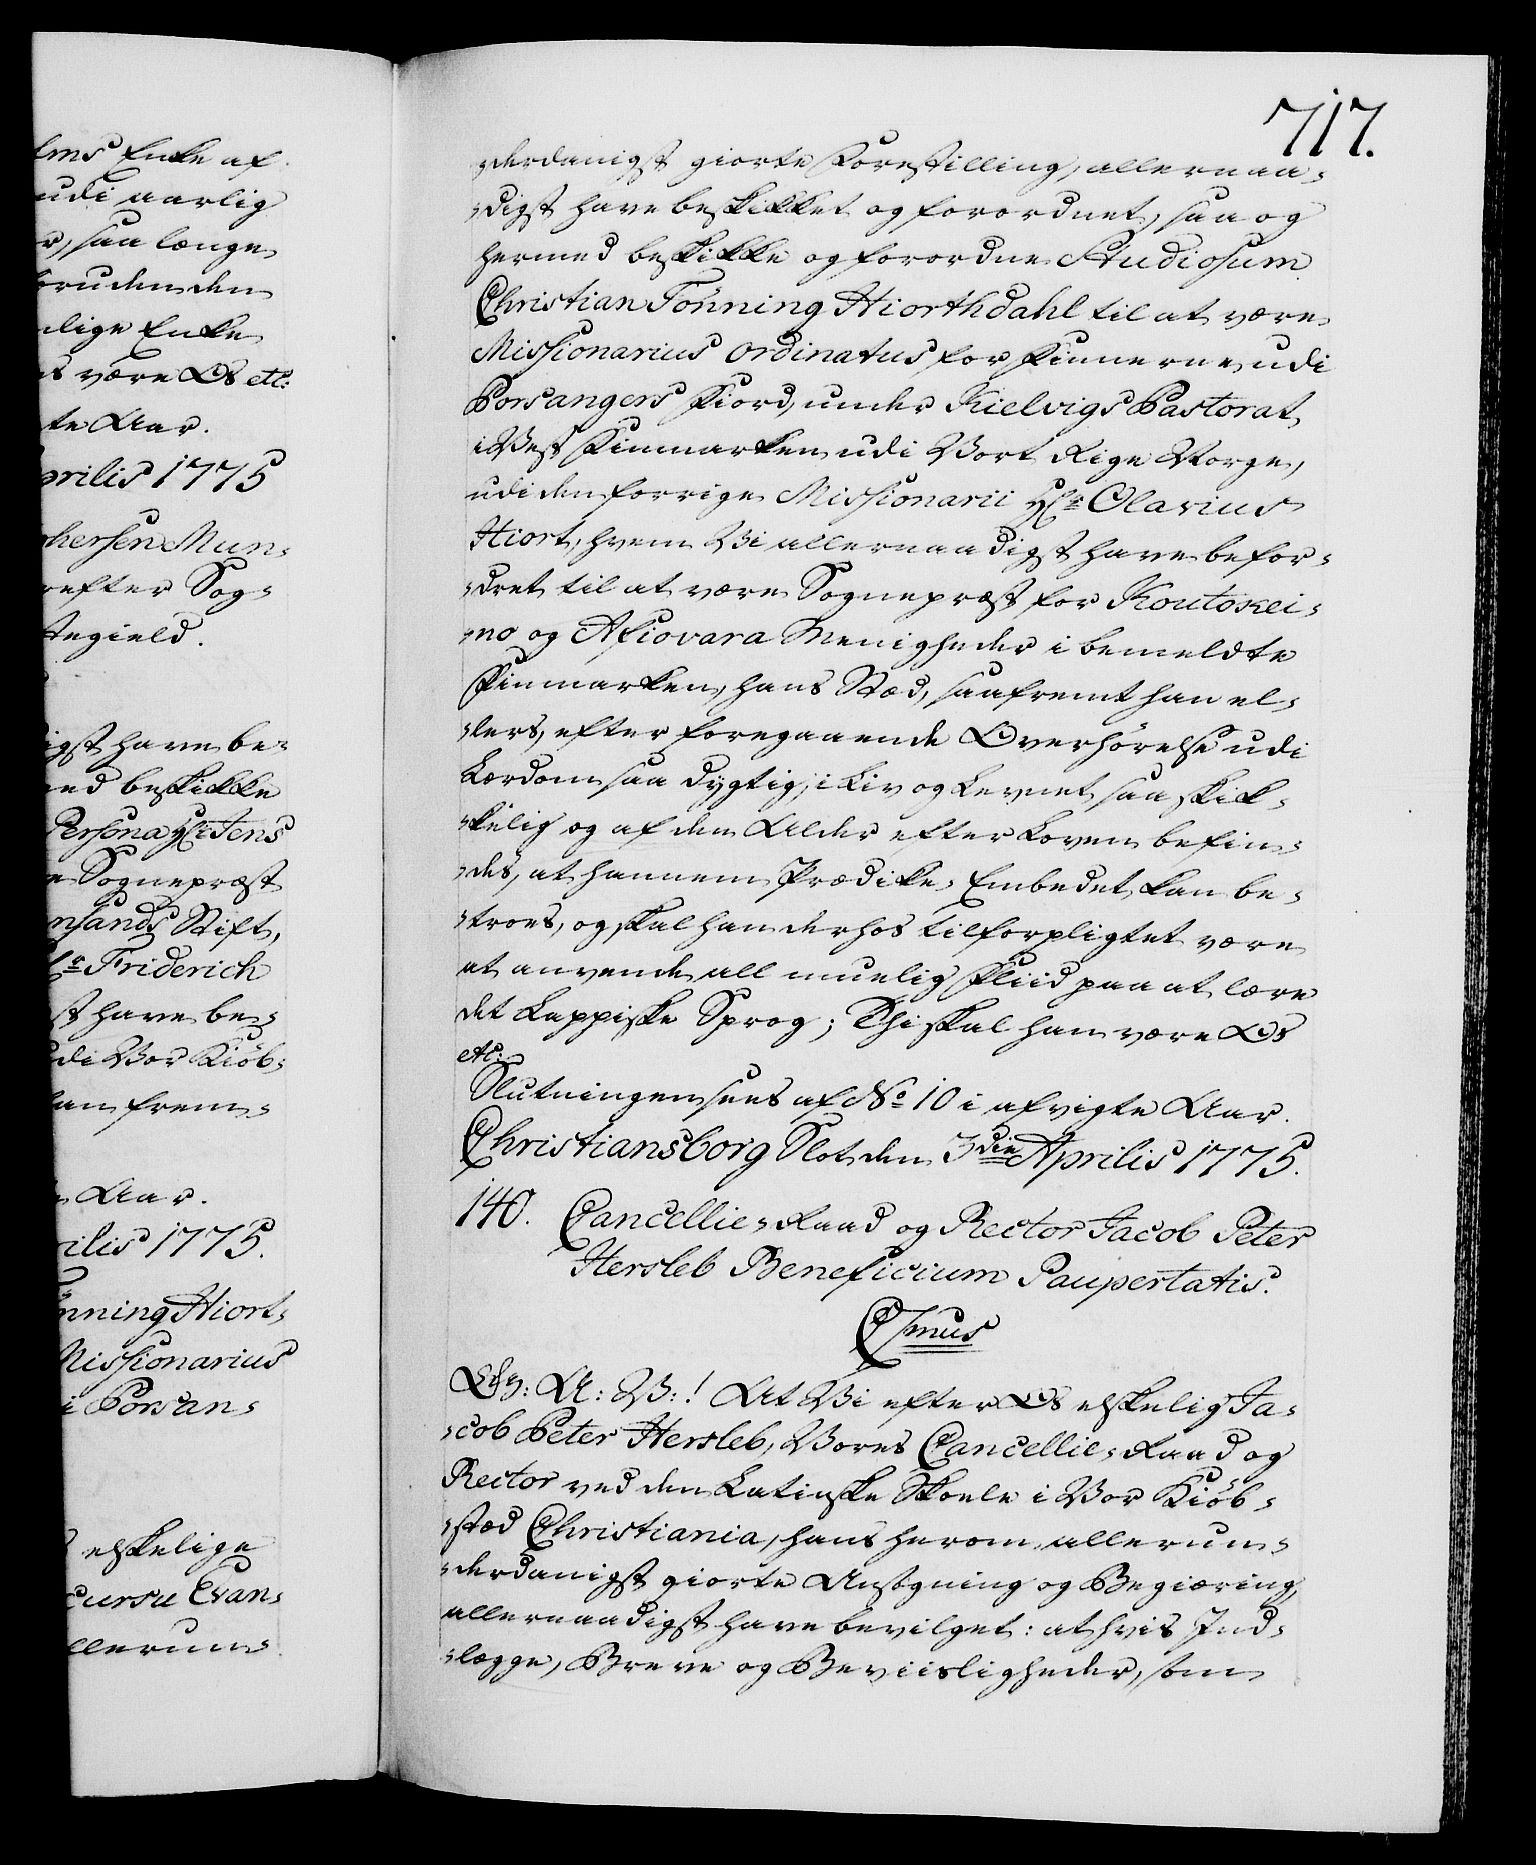 lms Enke af
udi aarlig
r, saa længe
foruden den
lige Enke
s være Os etc:
te Aar.
prilis 1775
hersen Mun-
refter Sog-
tegield.
igst have be-
ed beskikke
Persona Hr Jens
e Sognepræst
nsands Stift,
Hr Friderich
st have be-
udi Vor Kiöb-
an frem-
Aar.
rilis 1775.
önning Hiort-
Missionarius
i Porsan-
elskelige
cursu Evan-
llerun-
717.
-derdanigst giorte Forestilling, allernaa-
-digst have beskikket og forordnet, saa og
hermed beskikke og forordne Studiosum
Christian Tönning Hiorthdahl til at være
Missionarius ordinatus for Finnerne udi
Porsangers Fiord, under Kielvigs Pastorat,
i Vest Finmarken udi Vort Rige Norge,
udi den forrige Missionarii Hr Olavius
Hiort, hvem Vi allernaadigst have befor-
-dret til at være Sognepræst for Koutokei-
-no og Afiovara Menigheder i bemeldte
Finmarken, hans Stæd, saafremt han el-
-lers, efter foregaaende Overhörelse udi
Lærdom saa dygtig, i Liv og Levnet saa skik-
-kelig og af den Alder efter Loven befin-
-des, at hannem Prædike-Embedet kan be-
-troes, og skal han derhos tilforpligtet være
at anvende all muelig Fliid paa at lære
det Lappiske Sprog; Thi skal han være Os
etc:
Slutningen sees af No 10 i afvigte Aar.
Christiansborg Slot den 3die Aprilis 1775.
140. Cancellie-Raad og Rector Jacob Peter
Hersleb Beneficium Paupertatis.
Csmus
Gh: A: V:! At Vi efter Os elskelig Ja-
-cob Peter Hersleb, Vores Cancellie-Raad og
Rector ved den Latinske Skoele i Vor Kiöb-
-stæd Christiania, hans herom allerun-
-derdanigst giorte Ansögning og Begiæring,
allernaadigst have bevilget: at hvis Ind-
-lægge, Breve og Beviisligheder, som